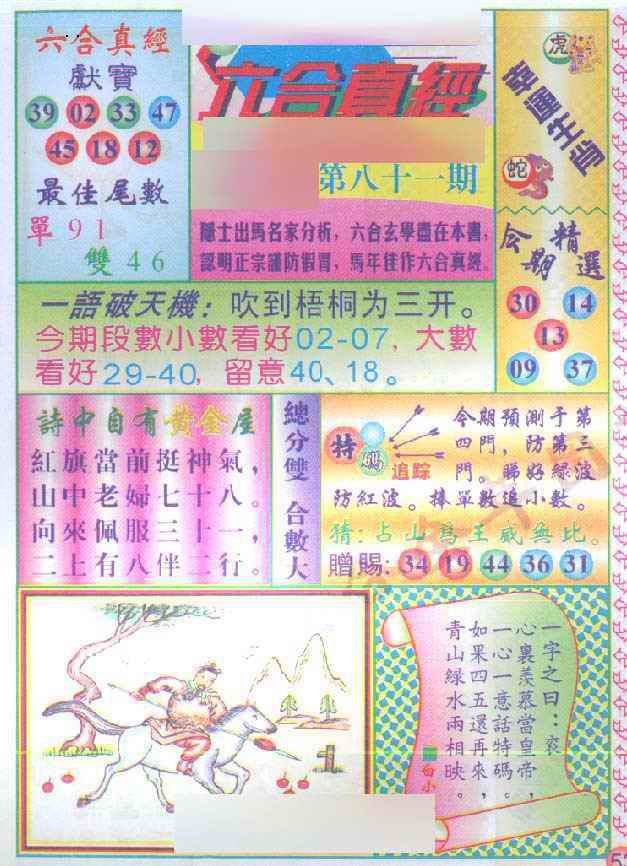 六合真經
獻寶
39 02 33 47
45 18 12
最佳尾數
單91
雙46
六合真經
第八十一期
隱士出馬名家分析，六合玄學盡在本書，
認明正宗謹防假冒，馬年佳作六合真經。
虎
蛇
今期精選
30 14
13
09 37
一語破天機：吹到梧桐为三开。
今期段數小數看好02-07，大數
看好29-40，留意40、18。
詩中自有黃金屋
紅旗當前挺神氣，
山中老婦七十八。
向來佩服三十一，
二上有八伴二行。
總分雙 合數大
特碼
追踪
今期預測于第
四門，防第三
門。睇好綠波
防紅波。捧單數追小數。
猜:占山為王威無比。
贈賜: 34 19 44 36 31
一字之曰：衮
心裏羨慕當皇帝，
一心一意話特碼，
如果四五還再來，
青山綠水兩相映。
1